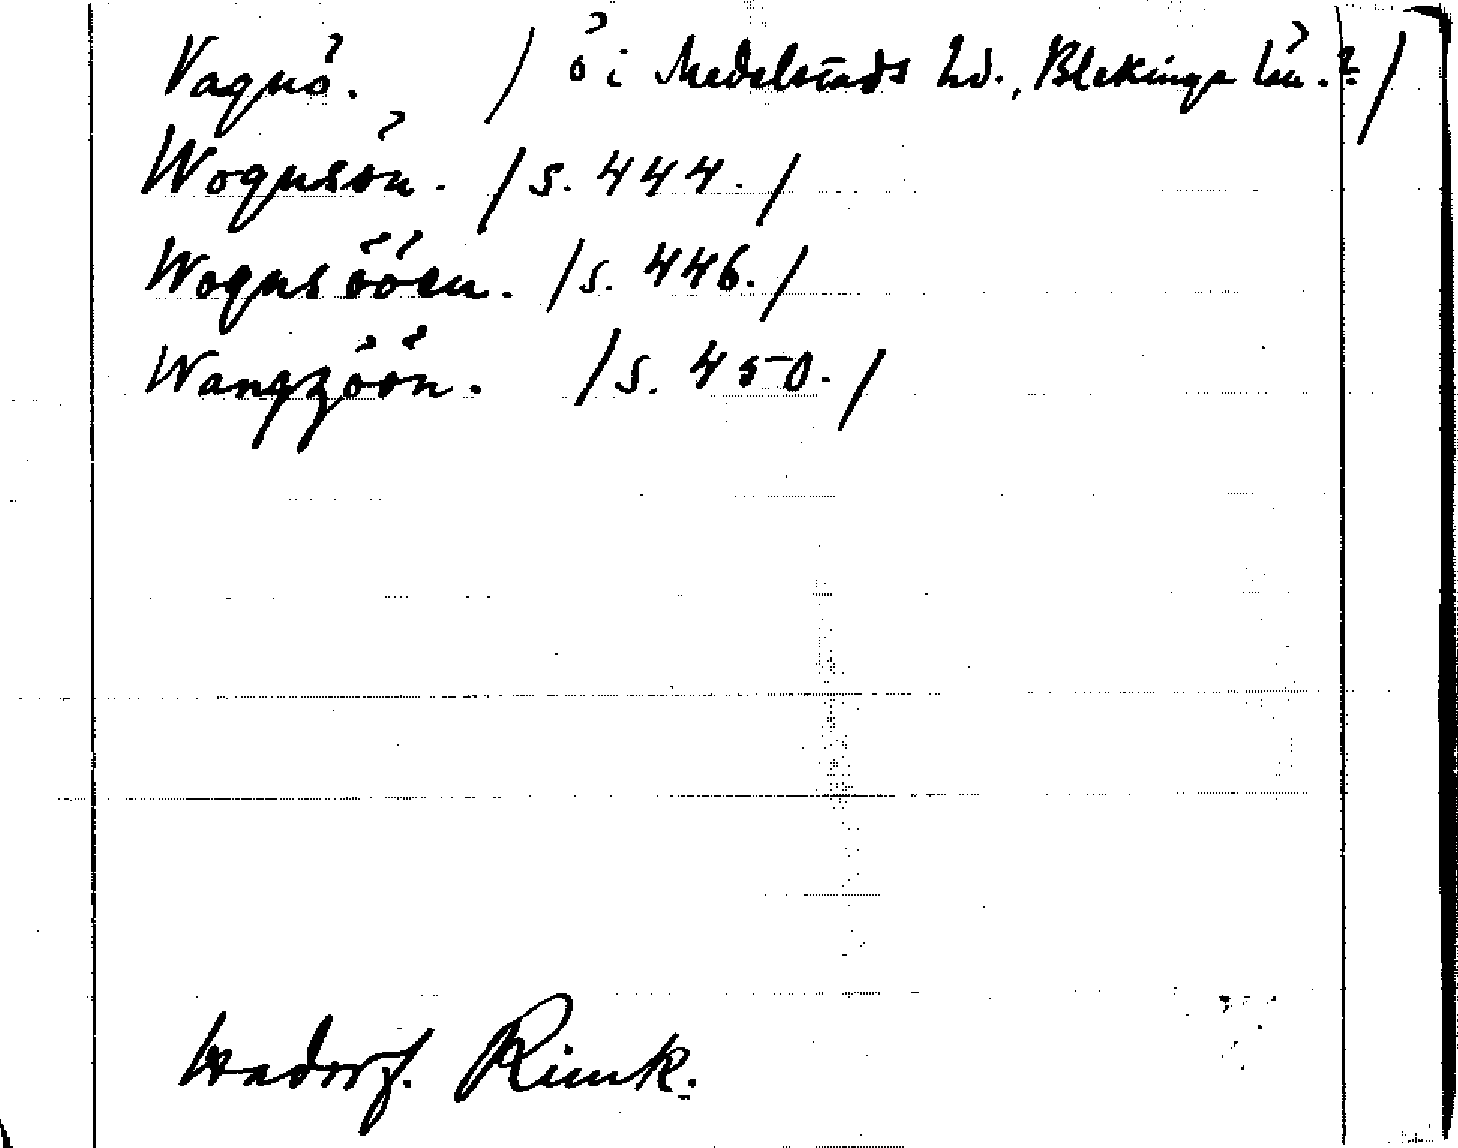 Vagnö. / ö i Medelstads hd., Blekinge län. ? /
Wognsön. / s. 444. /
Wognsööen. / s. 446. /
Wangzöön. / s. 450. /
Hadorf. Rimk.